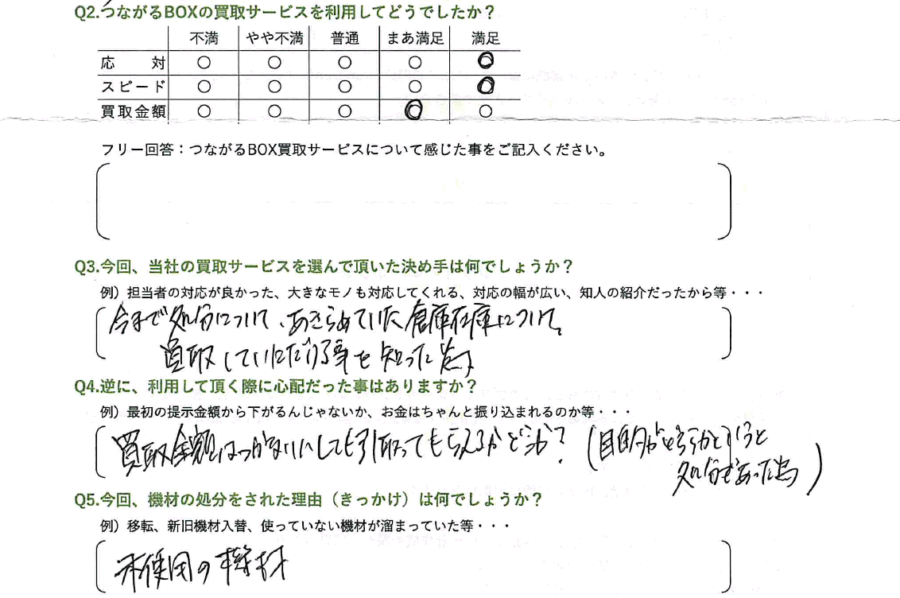 Q2.つながるBOXの買取サービスを利用してどうでしたか？
不満 やや不満 普通 まあ満足 満足
応対 ○ ○ ○ ○ ○
スピード ○ ○ ○ ○ ○
買取金額 ○ ○ ○ ○ ○
フリー回答：つながるBOX買取サービスについて感じた事をご記入ください。
Q3.今回、当社の買取サービスを選んで頂いた決め手は何でしょうか？
例）担当者の対応が良かった、大きなモノも対応してくれる、対応の幅が広い、知人の紹介だったから等・・・
今まで処分について、あきらめていた倉庫在庫について
買取していただける事を知った為。
Q4.逆に、利用して頂く際に心配だった事はありますか？
例）最初の提示金額から下がるんじゃないか、お金はちゃんと振り込まれるのか等・・・
買取金額はつかないにしても引取ってもらえるかどうか？（目的がどちらかというと
処分であった為）
Q5.今回、機材の処分をされた理由（きっかけ）は何でしょうか？
例）移転、新旧機材入替、使っていない機材が溜まっていた等・・・
未使用の機材